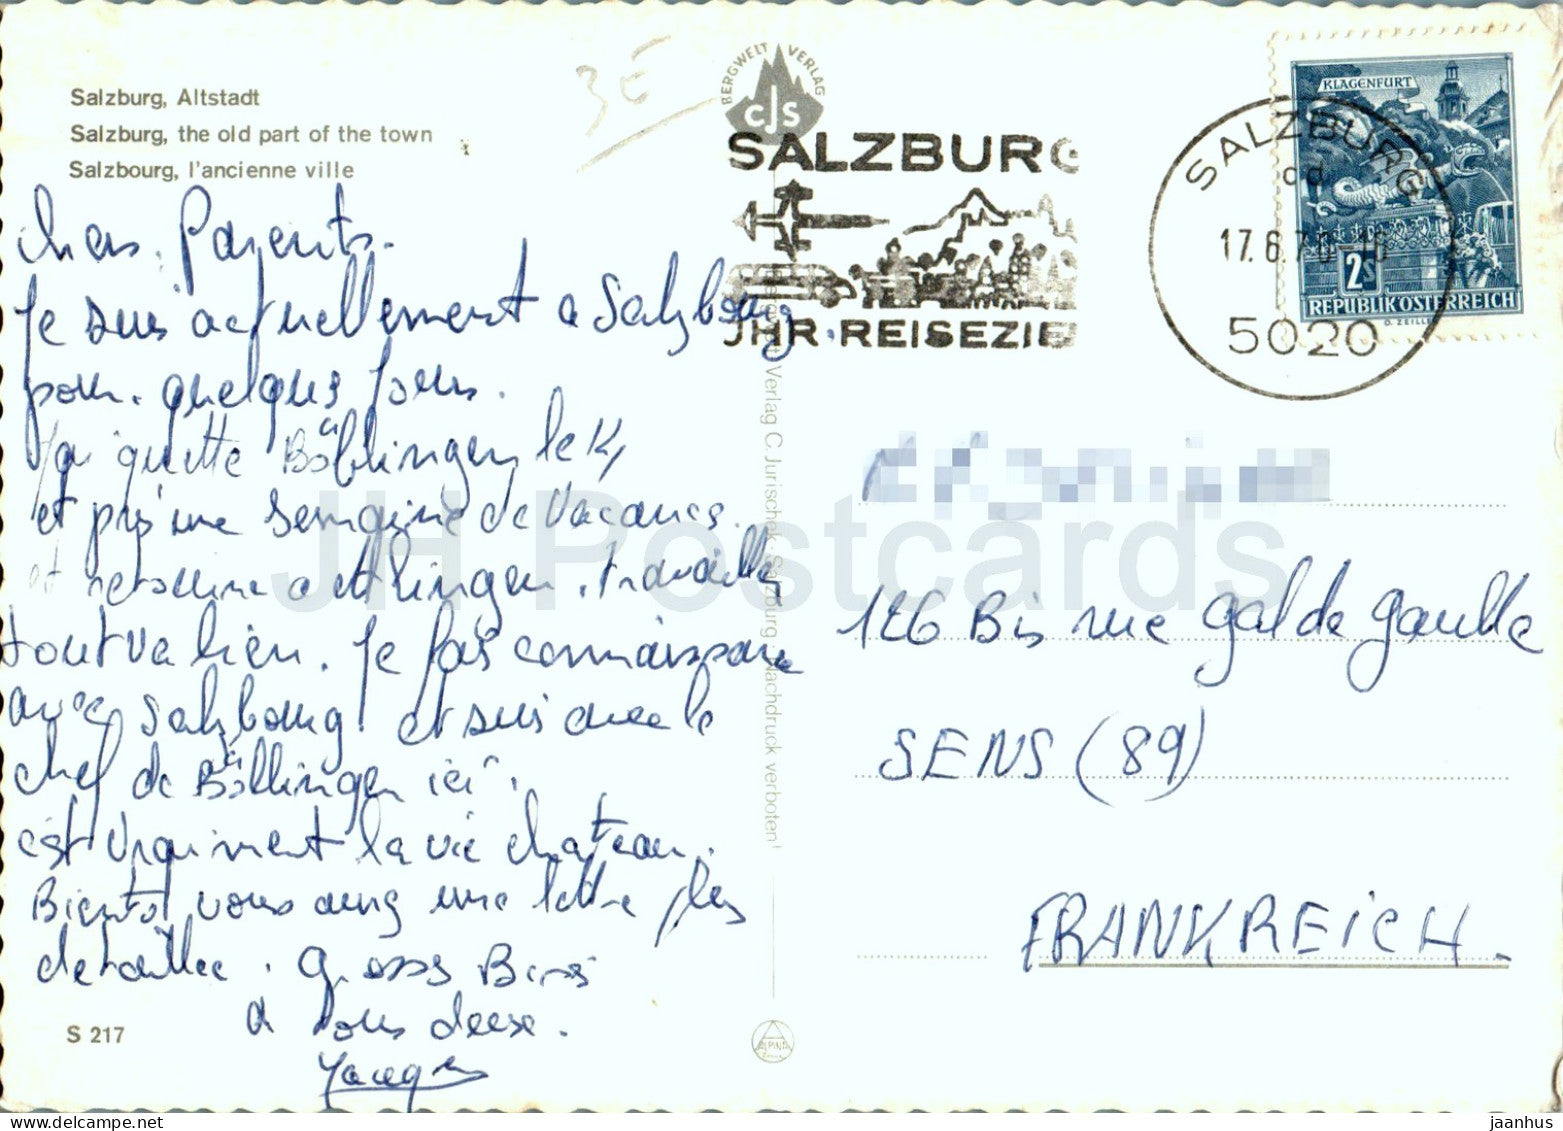 Salzburg, Altstadt
Salzburg, the old part of the town
Salzbourg, l'ancienne ville
3E
BERGWELT VERLAG
CJS
SALZBURG
JHR REISEZIE
SALZBURG
cd
17.6.70-16
5020
KLAGENFURT
2S
REPUBLIK ÖSTERREICH
O. ZEILL
Chers Parents.
Je suis actuellement a Salzbourg
pour quelques jours.
J'ai quitté Böblingen le 14
et pris une semaine de Vacances.
et retourne a Böblingen. travailler
tout va bien. Je fais connaissance
avec Salzbourg et suis avec le
chef de Böblingen ici.
c'est vraiment la vie chateau.
Bientot vous aurez une lettre plus
detaillee. gross Bises
a vous deux.
Jacques
S 217
Verlag C. Jurischek, Salzburg Nachdruck verboten!
ALPINA
126 Bis rue gal de gaulle
SENS (89)
FRANKREICH.
JH Postcards
jaanhus